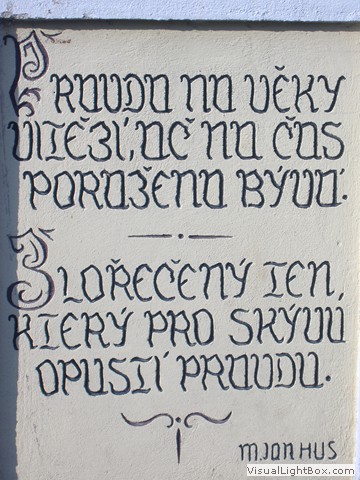 PRAVDA NA VĚKY
VÍTĚZÍ, AČ NA ČAS
PORAŽENA BÝVÁ.
ZLOŘEČENÝ TEN,
KTERÝ PRO SKÝVU
OPUSTÍ PRAVDU.
M. JAN HUS
VisualLightBox.com